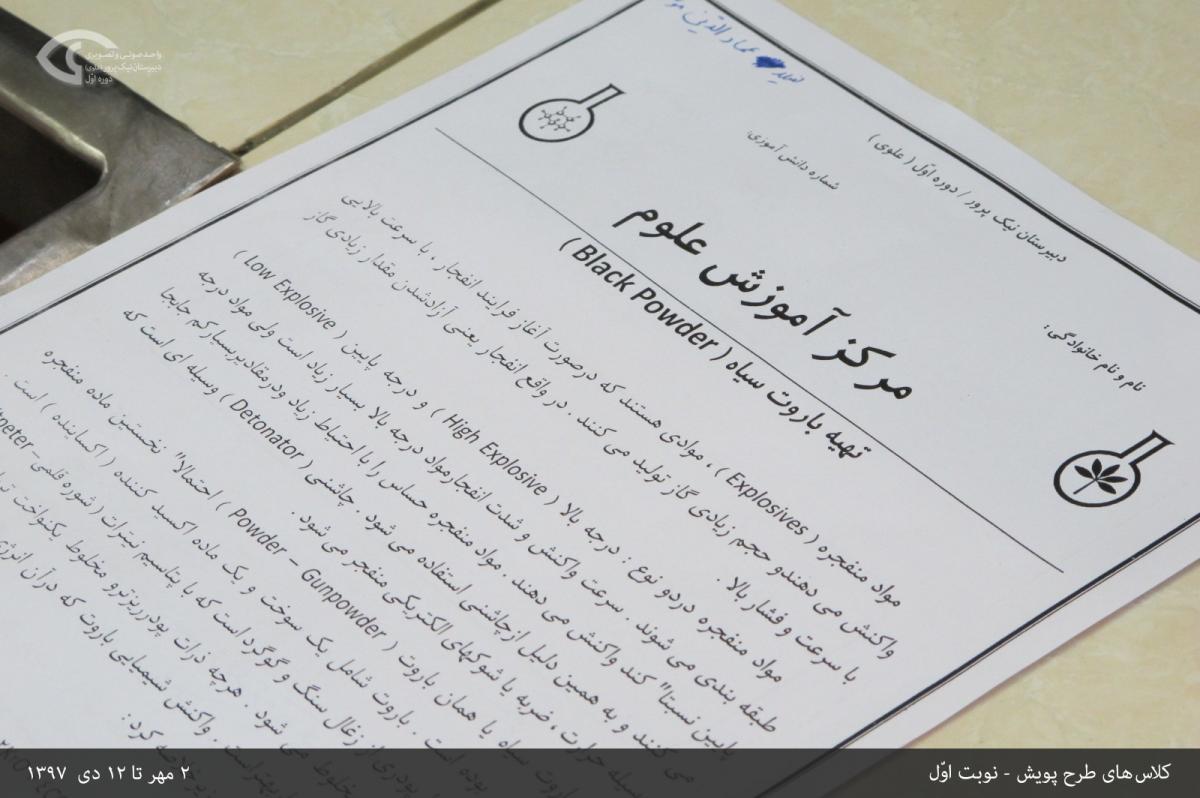 واحد صوتی و تصویری
دبیرستان نیک‌پرور (علوی)
دوره اوّل
عماد الدین
دبیرستان نیک پرور / دوره اوّل ( علوی )
شماره دانش آموزی:
نام و نام خانوادگی :
مرکز آموزش علوم
تهیه باروت سیاه ( Black Powder )
مواد منفجره ( Explosives ) ، موادی هستند که درصورت آغاز فرایند انفجار ، با سرعت بالایی
واکنش می دهندو حجم زیادی گاز تولید می کنند . در واقع انفجار یعنی آزادشدن مقدار زیادی گاز
با سرعت و فشار بالا .
مواد منفجره دردو نوع : درجه بالا ( High Explosive ) و درجه پایین ( Low Explosive )
طبقه بندی می شوند . سرعت واکنش و شدت انفجارمواد درجه بالا بسیار زیاد است ولی مواد درجه
پایین نسبتا" کند واکنش می دهند . مواد منفجره حساس را با احتیاط زیاد ودرمقادیربسیارکم جابجا
می کنند و به همین دلیل ازچاشنی استفاده می شود . چاشنی ( Detonator ) وسیله ای است که
وسیله حرارت ، ضربه یا شوکهای الکتریکی منفجر می شود .
سیاه یا همان باروت ( Powder – Gunpowder ) احتمالا" نخستین ماده منفجره
بوده است . باروت شامل یک سوخت و یک ماده اکسید کننده ( اکساینده ) است .
پودری از زغال سنگ و گوگرد است که با پتاسیم نیترات ( شوره قلمی–
مخلوط می شود . هرچه ذرات پودرریزترو مخلوط یکنواخت
بهتراست . واکنش شیمیایی باروت که درآن انرژی
کرد :
کلاس‌های طرح پویش - نوبت اوّل
۲ مهر تا ۱۲ دی ۱۳۹۷